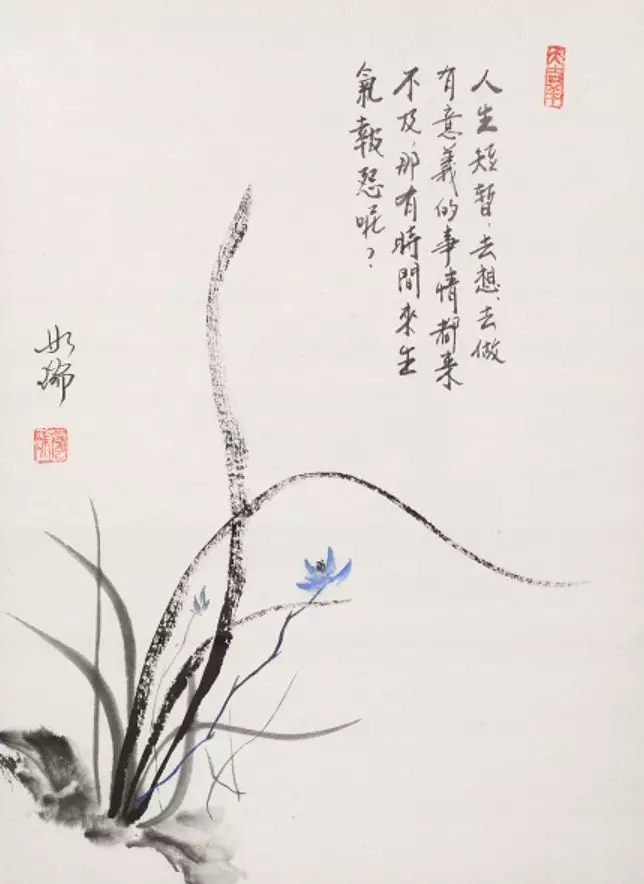 人生短暫，去想、去做
有意義的事情都来
不及，那有時間來生
氣報怨呢？